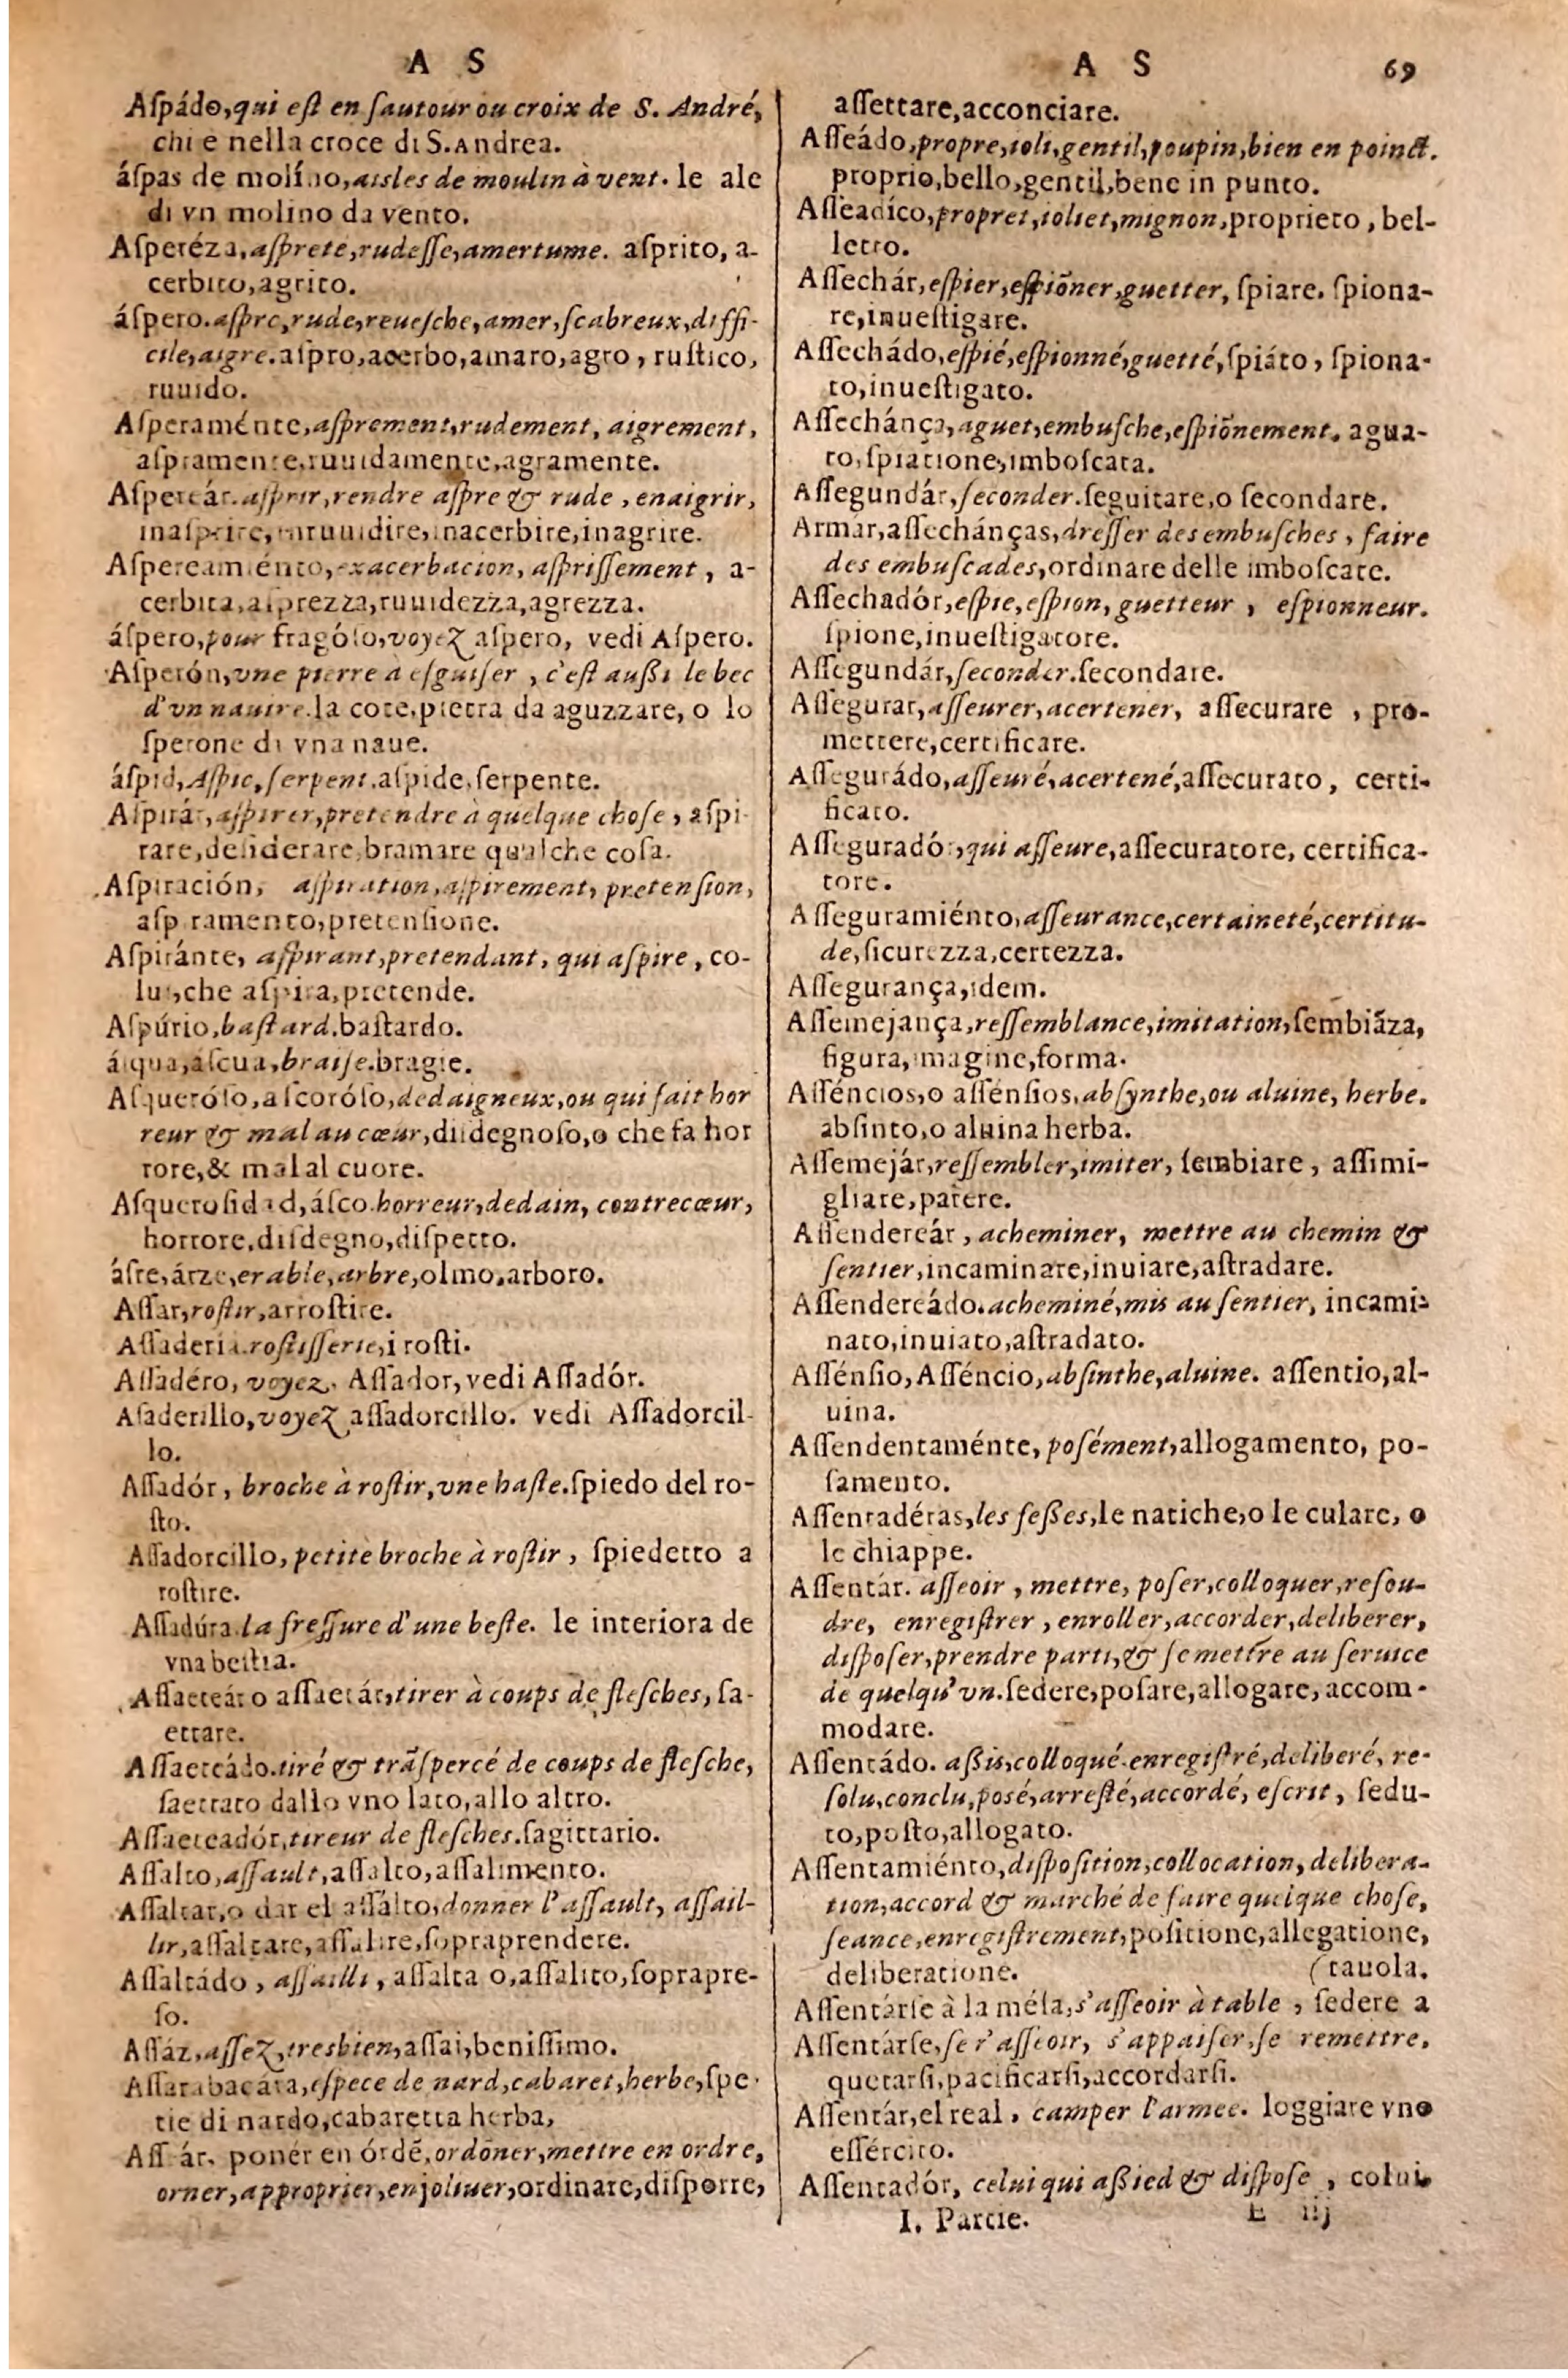 A S
Aſpádo, qui eſt en ſautour ou croix de S. André,
chi e nella croce di S. Andrea.
áſpas de molíno, aisles de moulin à vent. le ale
di vn molino da vento.
Aſperéza, aſpreté, rudeſſe, amertume. aſprito, a-
cerbito, agrito.
áſpero. aſpre, rude, reueſche, amer, ſcabreux, diffi-
cile, aigre. aſpro, acerbo, amaro, agro, ruſtico,
ruuido.
Aſperaménte, aſprement, rudement, aigrement,
aſpramente, ruuidamente, agramente.
Aſpereár. aſprir, rendre aſpre & rude, enaigrir,
inaſprire, inruuidire, inacerbire, inagrire.
Aſpereamiénto, exacerbacion, aſpriſſement, a-
cerbita, aſprezza, ruuidezza, agrezza.
áſpero, pour fragóſo, voyez aſpero, vedi Aſpero.
Aſperón, vne pierre a eſguiſer, c'eſt außi le bec
d'vn nauire. la cote, pietra da aguzzare, o lo
ſperone di vna naue.
áſpid, Aſpic, ſerpent. aſpide, ſerpente.
Aſpirár, aſpirer, pretendre à quelque choſe, aſpi-
rare, deſiderare, bramare qualche coſa.
Aſpiración, aſpiration, aſpirement, pretenſion,
aſpiramento, pretenſione.
Aſpiránte, aſpirant, pretendant, qui aſpire, co-
lui, che aſpira, pretende.
Aſpúrio, baſtard. baſtardo.
áſqua, aſcua, braiſe. bragie.
Aſqueróſo, aſcoróſo, dedaigneux, ou qui fait hor
reur & mal au cœur, diſdegnoſo, o che fa hor
rore, & mal al cuore.
Aſqueroſidad, áſco. horreur, dedain, contrecœur,
horrore, diſdegno, diſpetto.
áſre, árze, erable, arbre, olmo, arboro.
Aſſar, roſtir, arroſtire.
Aſſadería. roſtiſſerie, i roſti.
Aſſadéro, voyez. Aſſador, vedi Aſſadór.
Aſaderillo, voyez aſſadorcillo. vedi Aſſadorcil-
lo.
Aſſadór, broche à roſtir, vne haſte. ſpiedo del ro-
ſto.
Aſſadorcillo, petite broche à roſtir, ſpiedetto a
roſtire.
Aſſadúra. la freſſure d'une beſte. le interiora de
vna beſtia.
Aſſaeteár o aſſaetár, tirer à coups de fleſches, ſa-
ettare.
Aſſaeteádo. tiré & trãſpercé de coups de fleſche,
ſaettato dallo vno lato, allo altro.
Aſſaeteadór, tireur de fleſches. ſagittario.
Aſſalto, aſſault, aſſalto, aſſalimento.
Aſſaltar, o dar el aſſálto, donner l'aſſault, aſſail-
lir, aſſaltare, aſſalire, ſopraprendere.
Aſſaltádo, aſſailli, aſſalta o, aſſalito, ſoprapre-
ſo.
Aſſáz, aſſez, tresbien, aſſai, beniſſimo.
Aſſarabacára, eſpece de nard, cabaret, herbe, ſpe-
tie di nardo, cabaretta herba,
ponér en órdẽ, ordõner, mettre en ordre,
orner, approprier, enjoliuer, ordinare, diſporre,
A S 69
aſſettare, acconciare.
Aſſeádo, propre, ioli, gentil, poupin, bien en poinct.
proprio, bello, gentil, bene in punto.
Aſſeadíco, propret, ioliet, mignon, proprieto, bel-
letto.
Aſſechár, eſpier, eſpiõner, guetter, ſpiare. ſpiona-
re, inueſtigare.
Aſſechádo, eſpié, eſpionné, guetté, ſpiáto, ſpiona-
to, inueſtigato.
Aſſechánça, aguet, embuſche, eſpiõnement. agua-
to, ſpiatione, imboſcata.
Aſſegundár, ſeconder. ſeguitare, o ſecondare.
Armar, aſſechánças, dreſſer des embuſches, faire
des embuſcades, ordinare delle imboſcate.
Aſſechadór, eſpie, eſpion, guetteur, eſpionneur.
ſpione, inueſtigatore.
Aſſegundár, ſeconder. ſecondare.
Aſſegurar, aſſeurer, acertener, aſſecurare, pro-
mettere, certificare.
Aſſegurádo, aſſeuré, acertené, aſſecurato, certi-
ficato.
Aſſeguradór, qui aſſeure, aſſecuratore, certifica-
tore.
Aſſeguramiénto, aſſeurance, certaineté, certitu-
de, ſicurezza, certezza.
Aſſegurança, idem.
Aſſemejança, reſſemblance, imitation, ſembiãza,
figura, imagine, forma.
Aſſéncios, o aſſénſios, abſynthe, ou aluine, herbe.
abſinto, o aluina herba.
Aſſemejár, reſſembler, imiter, ſembiare, aſſimi-
gliare, parere.
Aſſendereár, acheminer, mettre au chemin &
ſentier, incaminare, inuiare, aſtradare.
Aſſendereádo. acheminé, mis au ſentier, incami-
nato, inuiato, aſtradato.
Aſſénſio, Aſſéncio, abſinthe, aluine. aſſentio, al-
uina.
Aſſendentaménte, poſément, allogamento, po-
ſamento.
Aſſentadéras, les feßes, le natiche, o le culare, o
le chiappe.
Aſſentár. aſſeoir, mettre, poſer, colloquer, reſou-
dre, enregiſtrer, enroller, accorder, deliberer,
diſpoſer, prendre parti, & ſe mettre au ſeruice
de quelqu'vn. ſedere, poſare, allogare, accom-
modare.
Aſſentádo. aßis, colloqué. enregiſtré, deliberé, re-
ſolu, conclu, poſé, arreſté, accordé, eſcrit, ſedu-
to, poſto, allogato.
Aſſentamiénto, diſpoſition, collocation, delibera-
tion, accord & marché de faire quelque choſe,
ſeance, enregiſtrement, poſitione, allegatione,
deliberatione. (tauola.
Aſſentárſe à la méſa, s'aſſeoir à table, ſedere a
Aſſentárſe, ſe r'aſſeoir, s'appaiſer, ſe remettre.
quetarſi, pacificarſi, accordarſi.
Aſſentár, el real, camper l'armee. loggiare vno
eſſército.
Aſſentadór, celui qui aßied & diſpoſe, colui
I. Partie. E iij